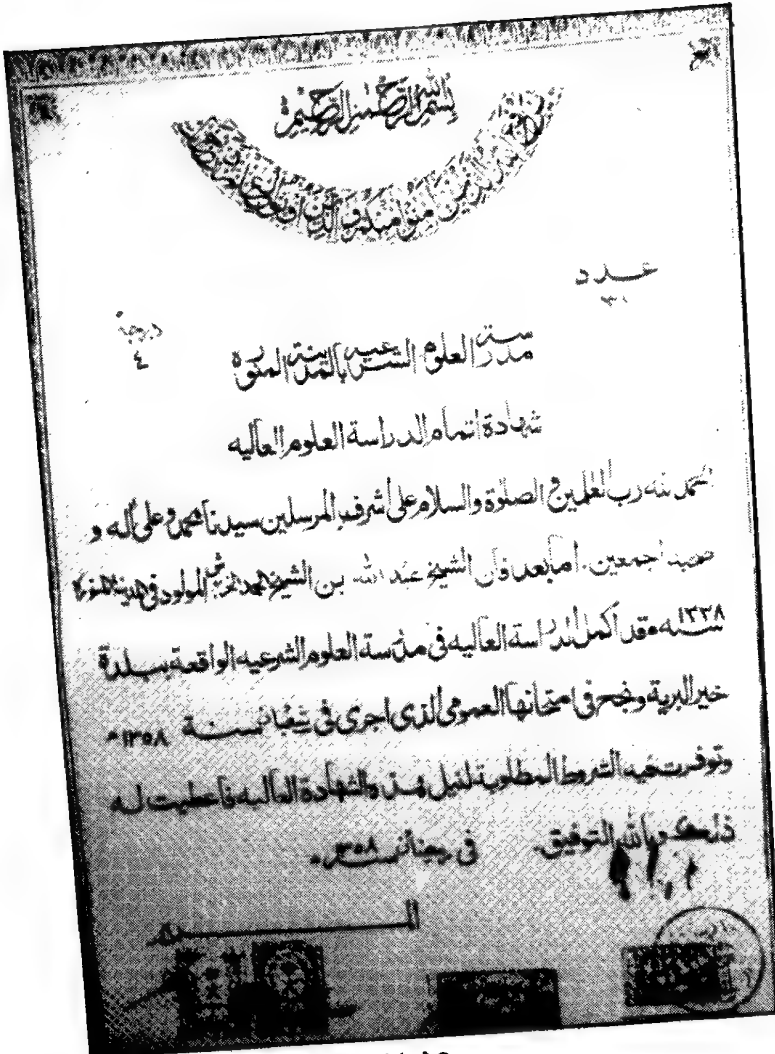 بسم الله الرحمن الرحيم
يرفع الله الذين آمنوا منكم والذين أوتوا العلم درجات
عدد
درجة
٤
مدرسة العلوم الشرعية بالمدينة المنورة
شهادة اتمام الدراسة العلوم العاليه
الحمد لله رب العلمين والصلوة والسلام على أشرف المرسلين سيدنا محمد وعلى آله و
صحبه اجمعين. أما بعد فأن الشيخ عبد الله بن الشيخ محمد المولود في المدينة المنورة
سنه ١٣٣٨ فقد أكمل الدراسة العاليه في مدرسة العلوم الشرعيه الواقعة ببلدة
خير البرية ونجح في امتحانها العمومي الذي اجرى في شعبان سنة ١٣٥٨
وتوفرت فيه الشروط المطلوبة لنيل هذه الشهادة العاليه فأعطيت له
ذلك وبالله التوفيق. في ١٣٥٨
المدير